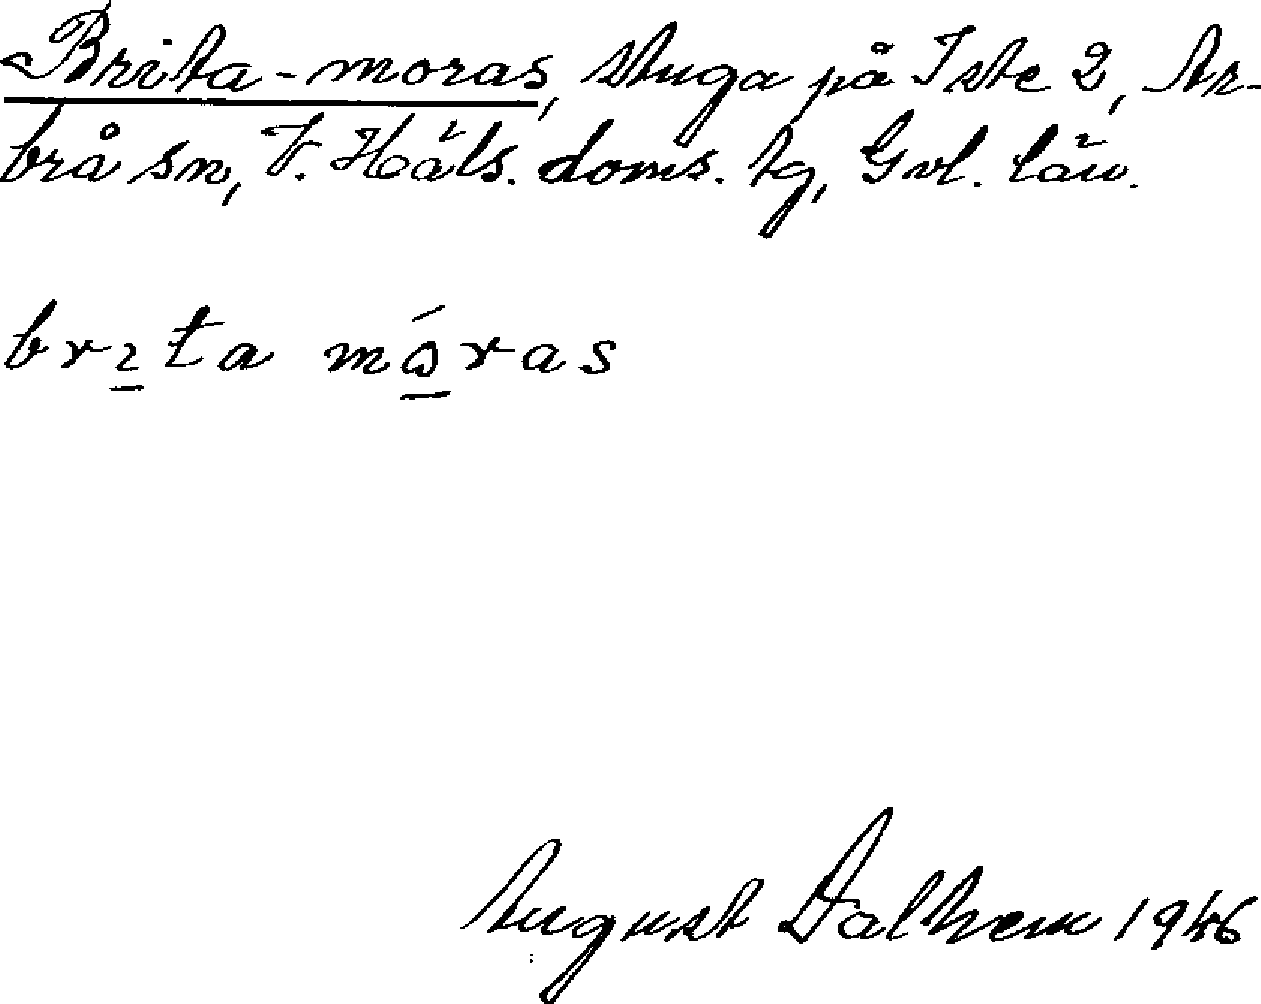 Brita-moras, stuga på Iste 2, Ar-
brå sn, V. Häls. doms. tg, Gvl. län.
brita móras
August Dalhem 1946